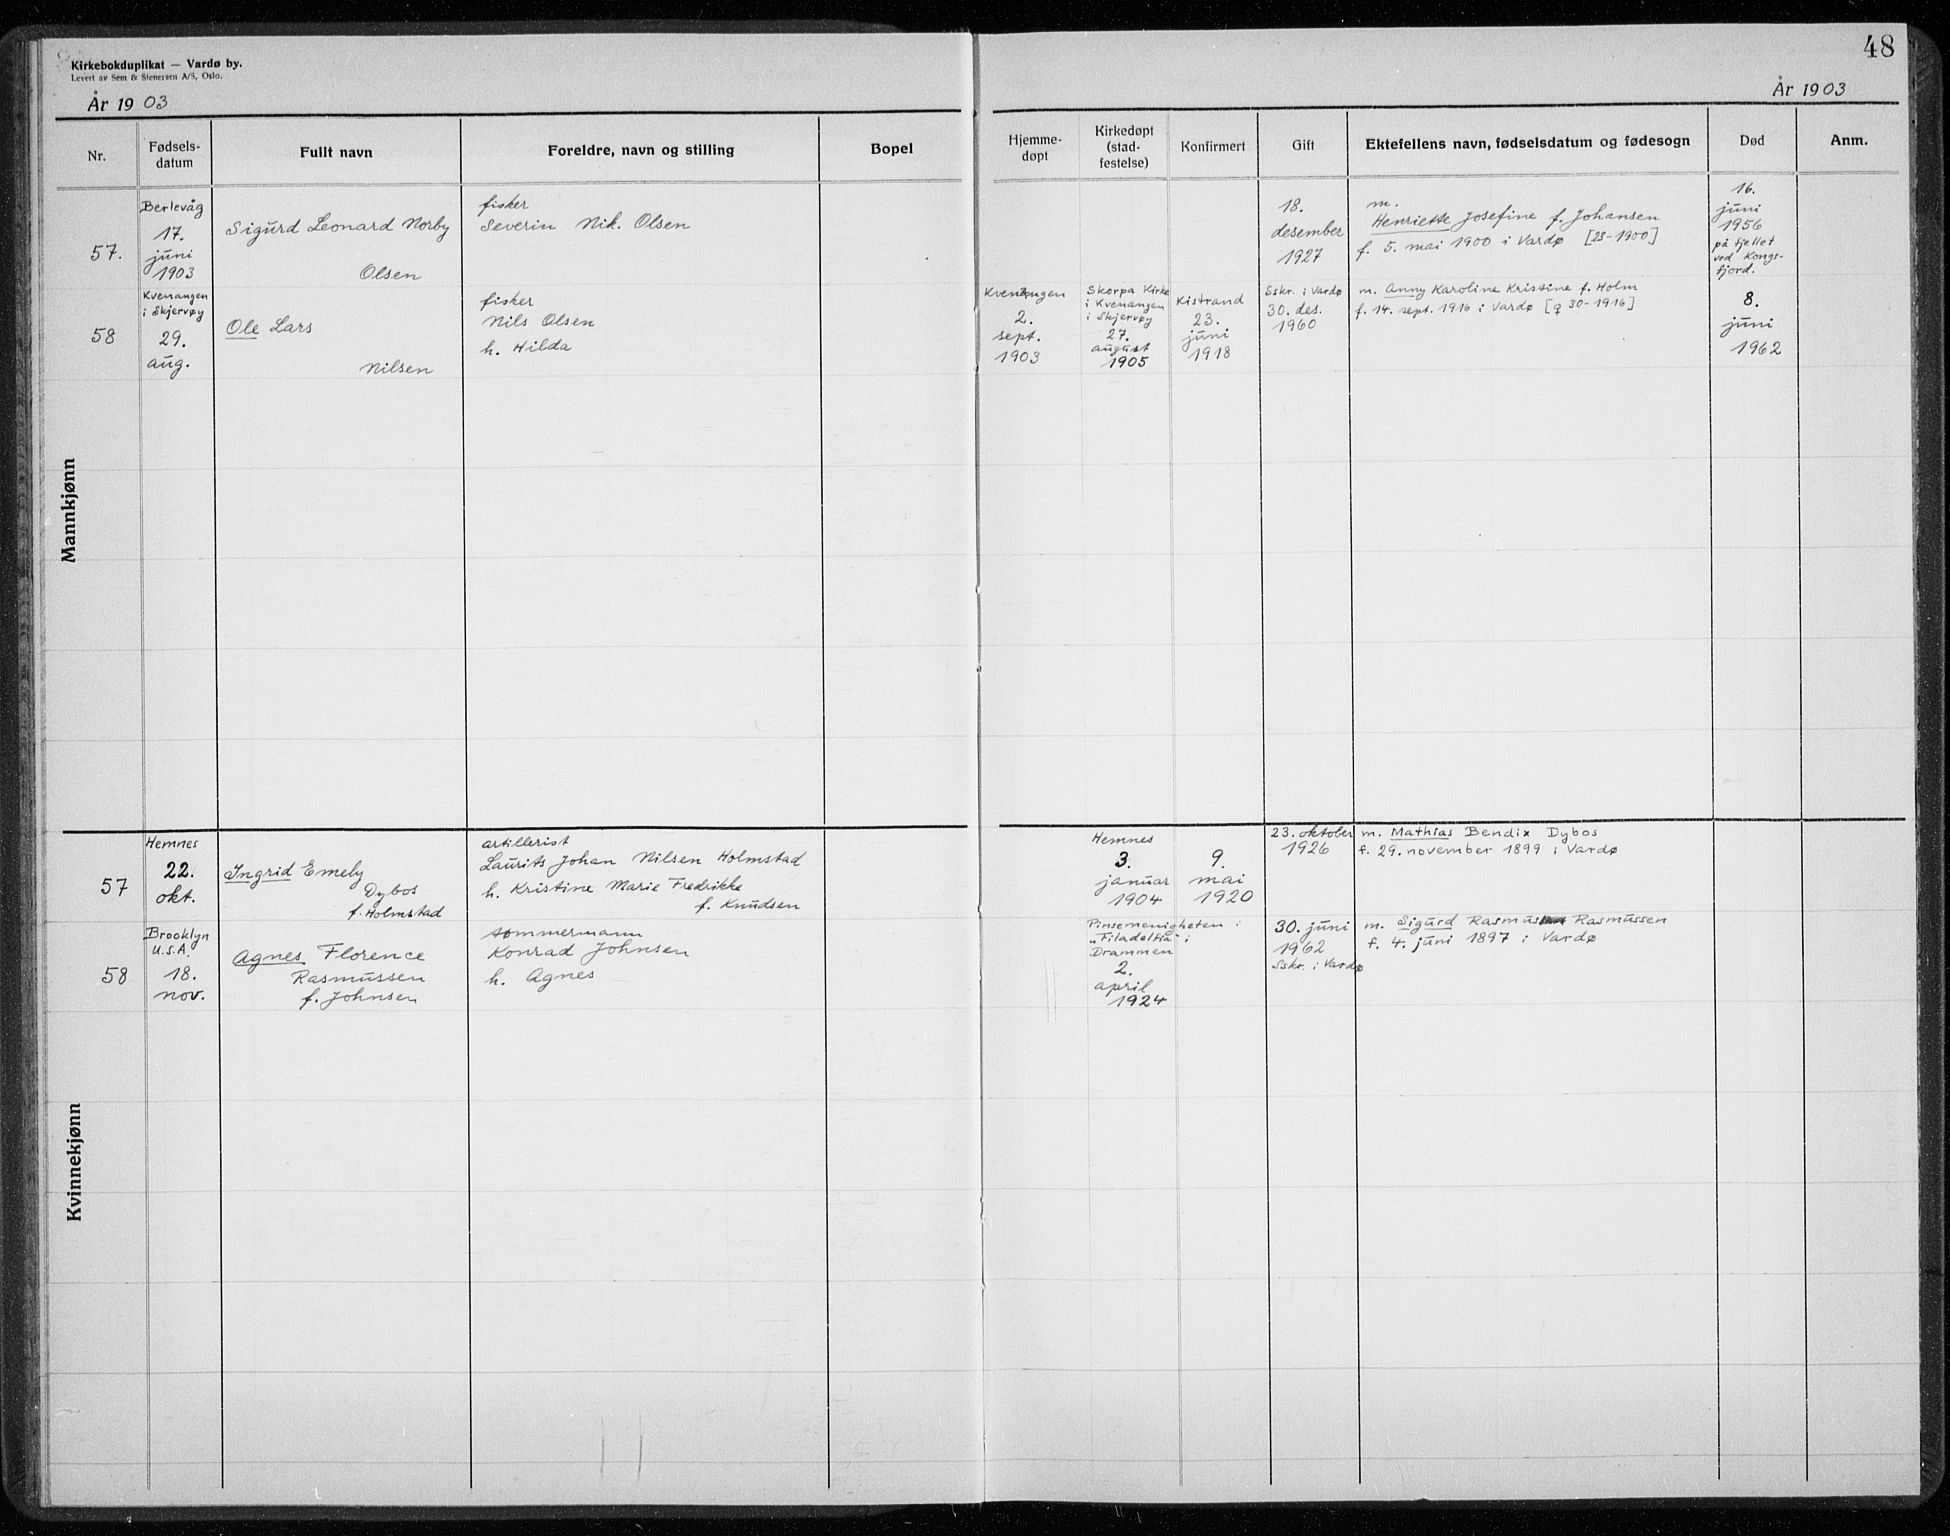 48
Kirkebokduplikat — Vardø by.
Levert av Sem & Stenersen A/S, Oslo.
År 1903
År 1903
Nr.
Fødsels-
datum
Fullt navn
Foreldre, navn og stilling
Bopel
Hjemme-
døpt
Kirkedøpt
(stad-
festelse)
Konfirmert
Gift
Ektefellens navn, fødselsdatum og fødesogn
Død
Anm.
Mannkjønn
57.
Berlevåg
17.
juni
1903
Sigurd Leonard Norby
Olsen
fisker
Severin Nik. Olsen
18.
desember
1927
m.
Henriette Josefine f. Johansen
f. 5. mai 1900 i Vardø [23-1900]
16.
juni
1956
på fjellet
ved Kongs-
fjord.
58
Kvenangen
i Skjervøy
29.
aug.
Ole Lars
Nilsen
fisker
Nils Olsen
h. Hilda
Kvenangen
2.
sept.
1903
Skorpa Kirke
i Kvenangen
i Skjervøy
27.
august
1905
Kistrand
23.
juni
1918
Sskr. i Vardø
30. des.
1960
m. Anny Karoline Kristine f. Holm
f. 14. sept. 1916 i Vardø [♀ 30-1916]
8.
juni
1962
Kvinnekjønn
57
Hemnes
22.
okt.
Ingrid Emely
Dybos
f. Holmstad
artillerist
Laurits Johan Nilsen Holmstad
h. Kristine Marie Fredrikke
f. Knudsen
Hemnes
3.
januar
1904
9.
mai
1920
23. oktober
1926
m. Mathias Bendix Dybos
f. 29. november 1899 i Vardø
58
Brooklyn
U.S.A.
18.
nov.
Agnes Florence
Rasmussen
f. Johnsen
tømmermann
Konrad Johnsen
h. Agnes
Pinsemenigheten i
"Filadelfia" i
Drammen
2.
april
1924
30. juni
1962
Sskr. i Vardø
m. Sigurd Rasmus Rasmussen
f. 4. juni 1897 i Vardø